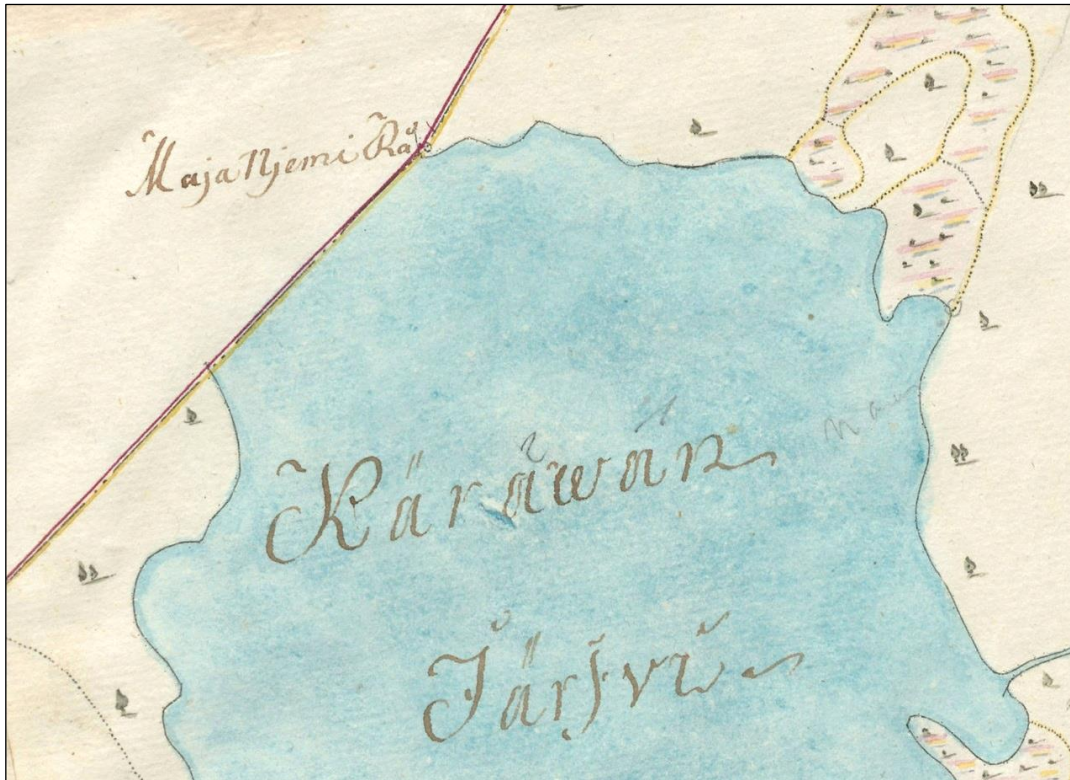 Maja Njemi Rå
Käräwän
Järfvi